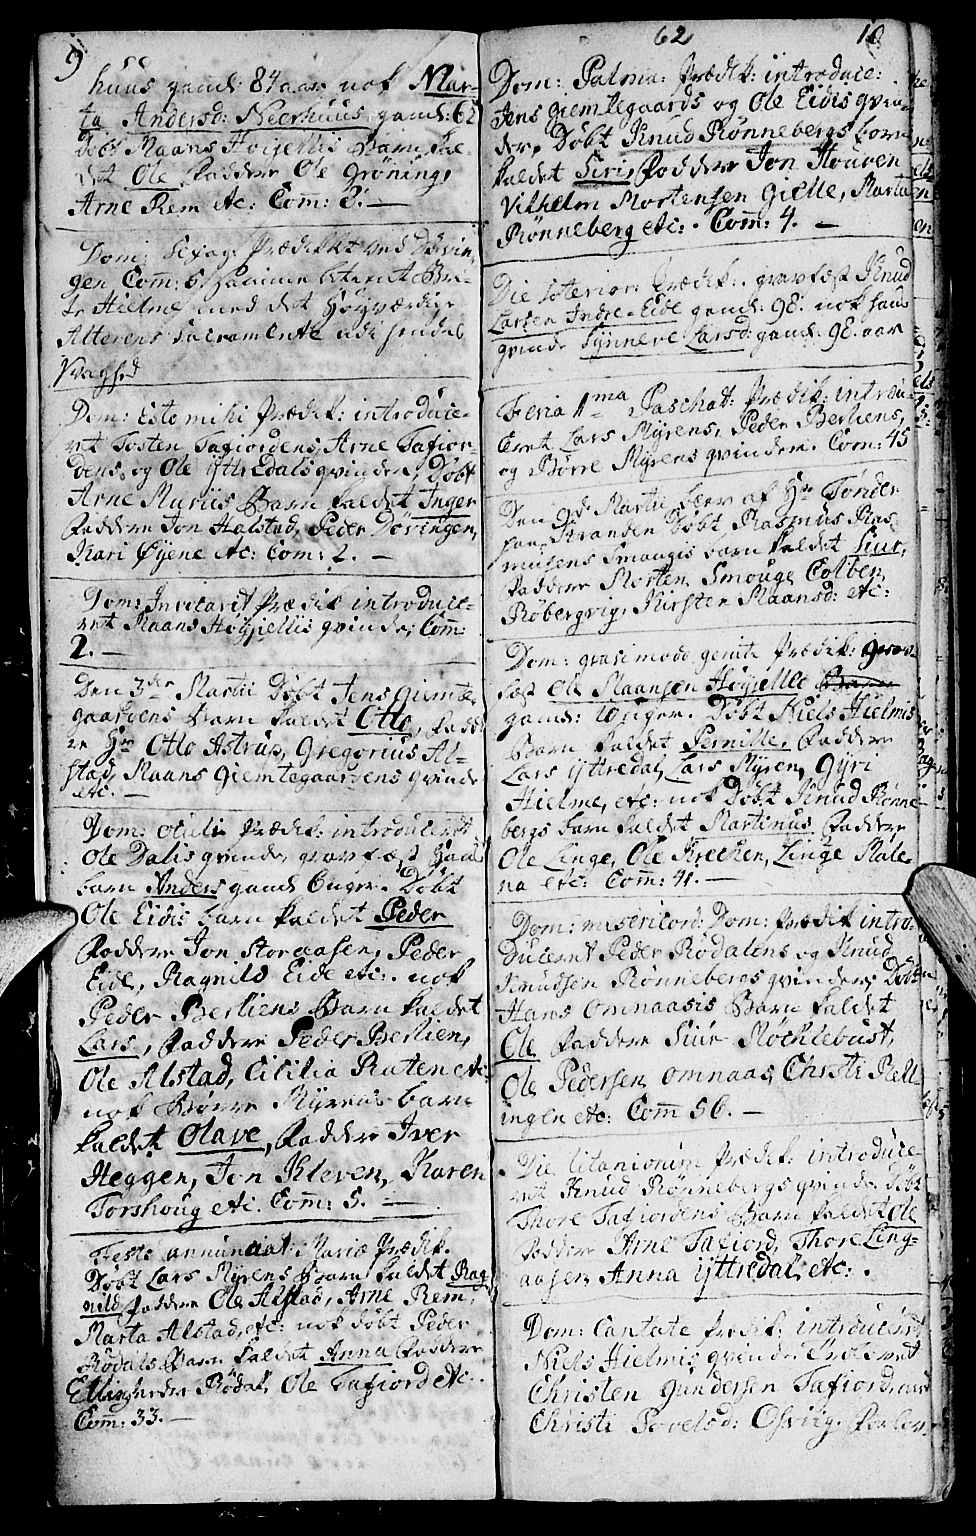 9
huus gamel: 84 aar nok Mar-
ta Andersd: Neerhuus, gamel: 62
Døbt Maans Høijellis Barn kal-
det Ole, Faddere Ole Grøning,
Arne Rem etc: Com: 3. —
Dom: Sexag: Prædikket ved Døvin-
gen Com: 6. samme betient Bri-
te Hielme med det Høyværdige
Alterens Sacramente udi hendes
Svaghed
Dom: Estomihi Prædik: introduce-
ret Tosten Tafiordens, Arne Tafior-
dens, og Ole yttredals qvinder, Døbt
Arne Muriis Barn kaldet Inger
Faddere Jon Halstad, Peder Døvingen,
Kari Øyene etc: Com: 2. —
Dom: Invocavit Prædik introduce-
ret Maans Høyjellis qvinde, Com:
2. —
Den 3die Martii Døbt Jens Giemte-
gaardens Barn kaldet Otto, Fadde-
re Hr Otto Astrup, Gregorius Al-
stad, Maans Giemtegaardens qvinde
etc. —
Dom: Oculi Prædik: introduceret
Ole Dalis qvinde, gravfæst Hans
barn Anders gamel 6 uger. Døbt
Ole Eidis barn kaldet Peder
Faddere Jon Storaasen, Peder
Eide, Ragnild Eide etc: nok
Peder Berliens Barn kaldet
Lars, Faddere Peder Berlien,
Ole Alstad, Cilitia Ruten etc
nok Børre Myrens barn
kaldet Olave, Faddere Iver
Heggen, Jon Kleven, Karen
Torshoug etc. Com: 5. —
Festo annunciat: Mariæ Prædik.
Døbt Lars Myrens Barn kaldet Rag-
nild, Faddere Ole Alstad, Arne Rem,
Marta Alstad, etc: nok døbt Peder
Rødals Barn kaldet Anna Faddere
Elling Rødal, Ole Tafiord etc.
Com: 33. —
62 10
Dom: Palma: Prædik: introduce:
Jens Giemtegaards og Ole Eidis qvin-
der, Døbt Knud Rønnebergs barn
kaldet Siri, Faddere Jon Houven
Vilhelm Mortensen Gielle, Marta
Rønneberg etc: Com: 4. —
Die Prædik: gravfæst Knud
Larsen Indre-Eide gamel: 98. nok hans
qvinde Synneve Larsd: gamel: 98. aar
Feria 1ma Paschat: Prædik: introdu-
ceret Lars Myrens, Peder Berliens,
og Børre Myrens qvinder. Com: 45
Den 9d Martii blev af Hr Tønder
paa Stranden Døbt Rasmus Ras-
musens Smaagis barn kaldet Siur,
Faddere Morten Smouge, Colben
Røbergvig, Kirsten Maansd: etc:
Dom: qvasimodo geniti Prædik: Grav-
fæst Ole Maansen Høyjelle
gamel: 10 uger. Døbt Niels Hielmis
Barn kaldet Pernille, Faddere
Lars yttredal, Lars Myren, Gyri
Hielme, etc: nok Døbt Knud Rønne-
bergs barn kaldet Martinus Faddere
Ole Linge, Ole Krecken, Linge Male-
na etc: Com: 41. —
Dom: misericord: Dom: Prædik intro-
duceret Peder Rødalens og Knud
Knudsen Rønnebergs qvinder, Døbt
Hans Omnaasis Barn kaldet
Ole Faddere Siur Mochlebust,
Ole Pedersen omnaas, Christi Rell-
ingen etc: Com 56. —
Die litanionim Prædik: introduce-
ret Knud Rønnebergs qvinde Døbt
Thore Tafiordens Barn kaldet Ole
Faddere Arne Tafiord, Thore Ling-
aasen, Anna yttredal, etc:
Dom: Cantate Prædik: introduceret
Niels Hielmis qvinde Trolovet
Christen Gundersen Tafiord, med
Christi Povelsd: Osvilg, Forlov.